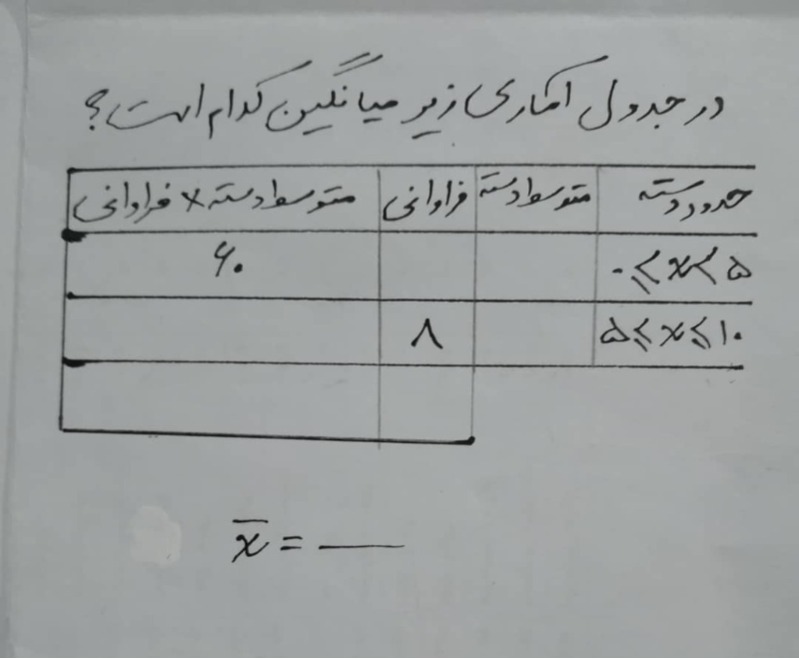 در جدول آماری زیر میانگین کدام است؟
حدود دسته متوسط دسته فراوانی متوسط دسته × فراوانی
۰ ⩽ x < ۵ ۶۰
۵ ⩽ x ⩽ ۱۰ ۸
x̄ = —